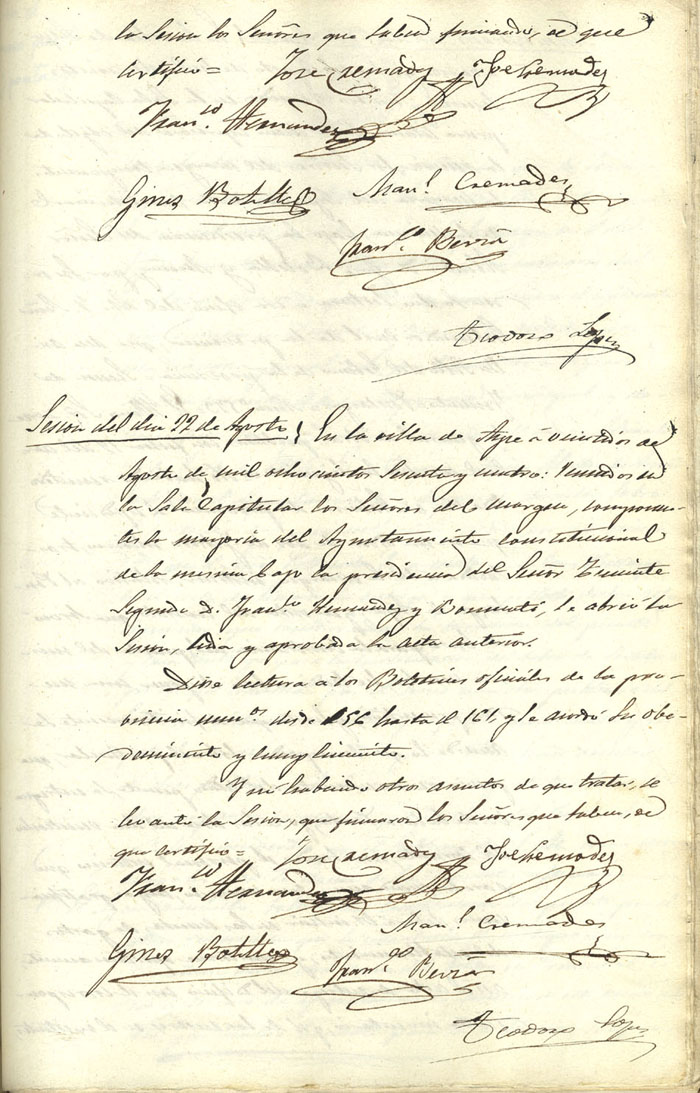 la Sesion los Señores que saben firmando, de que
certifico =
Jose Cremades
Jose Cremades
Fran.co Hernandez
Gines Botella
Man.l Cremades
Fran.co Beviá
Teodoro Lopez
Sesion del dia 22 de Agosto } En la villa de Aspe á veintidos de
Agosto de mil ochocientos sesenta y cuatro: Reunidos en
la Sala Capitular los Señores del margen, componen-
tes la mayoria del Ayuntamiento constitucional
de la misma bajo la presidencia del Señor Teniente
Segundo D. Fran.co Hernandez y , se abrió la
Sesion, leida y aprobada la acta anterior.
Diose lectura á los Boletines oficiales de la pro-
vincia num.os desde 156 hasta el 161, y se acordó su obe-
decimiento y cumplimiento.
Y no habiendo otros asuntos de que tratar, se
levantó la Sesion, que firmaron los Señores que saben, de
que certifico =
Jose Cremades
Jose Cremades
Fran.co Hernandez
Man.l Cremades
Gines Botella
Fran.co Beviá
Teodoro Lopez